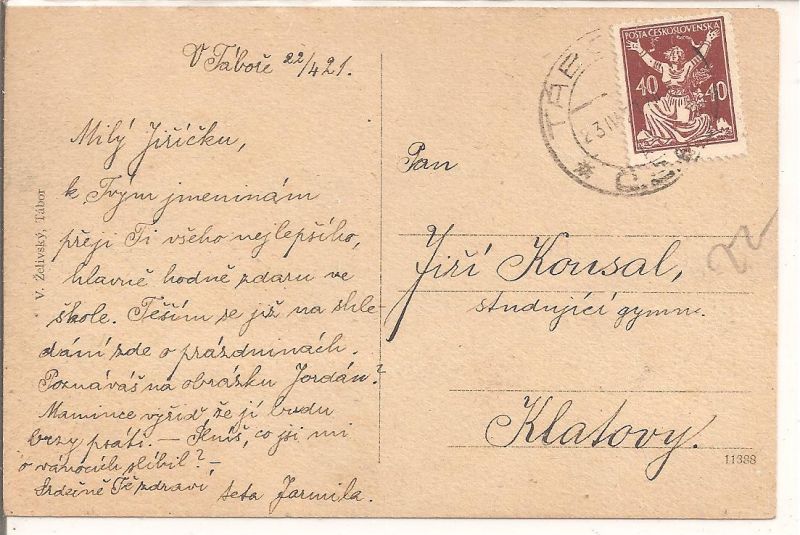 V Táboře 22/4 21.
Milý Jiříčku,
k Tvým jmeninám
přeji Ti všeho nejlepšího,
hlavně hodně zdaru ve
škole. Těším se již na shle-
dání zde o prázdninách.
Poznáváš na obrázku Jordán?
Mamince vyřiď že jí budu
brzy psáti. — Plníš, co jsi mi
o vánocích slíbil? —
Srdečně Tě zdraví
teta Jarmila.
V. Želivský, Tábor
POŠTA ČESKOSLOVENSKÁ
40 40
TÁB
Pan
Jiří Kousal,
studující gymn.
Klatovy.
22
11388